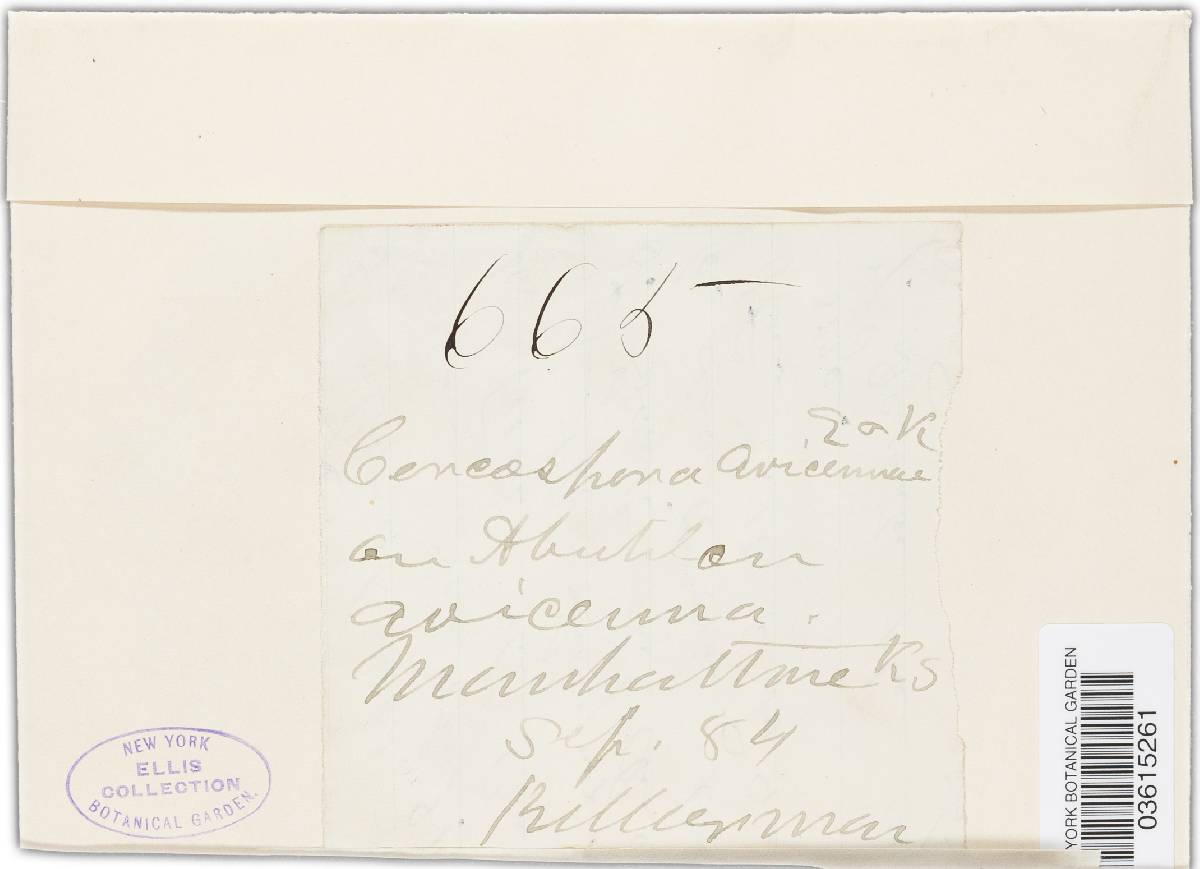 665
E & K
Cercospora avicennae
on Abutilon
avicenna.
Manhattan Ks
Sep. 84
Kellerman
NEW YORK
ELLIS
COLLECTION
BOTANICAL GARDEN.
YORK BOTANICAL GARDEN
03615261